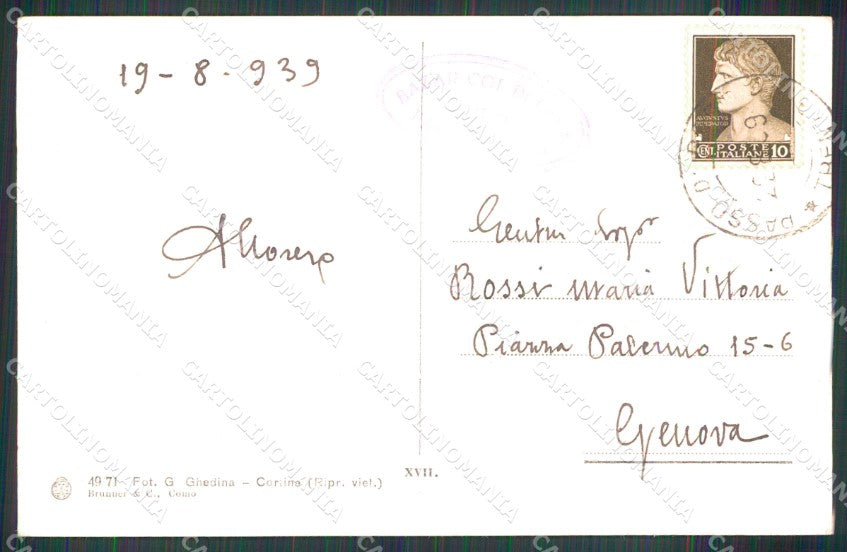 19-8-939
AVGVSTVS
CENT. POSTE 10
ITALIANE
PASSO
Rossi Maria Vittoria
Piazza Palermo 15-6
Genova
XVII.
4971 - Fot. G Ghedina - Cortina (Ripr. viet.)
Brunner & C., Como
CARTOLINOMANIA